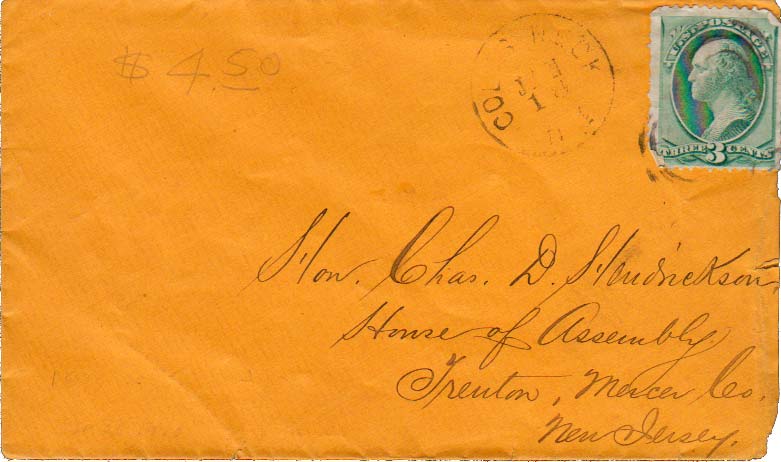 $ 4.50
COL S NECK
JAN
1
N J
U.S. POSTAGE
THREE 3 CENTS
Hon. Chas. D. Hendrickson,
House of Assembly,
Trenton, Mercer Co.
New Jersey.